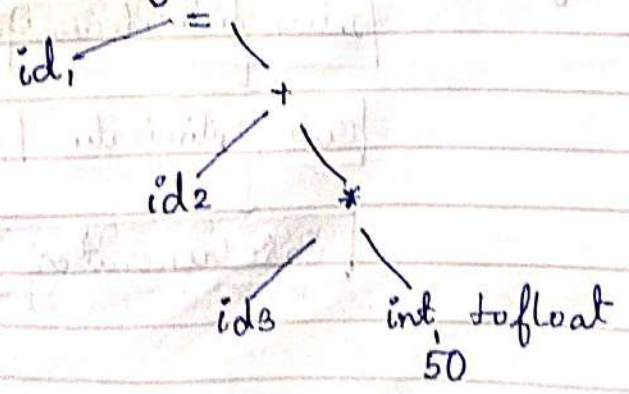 =
id1
+
id2
*
id3 int tofloat
50